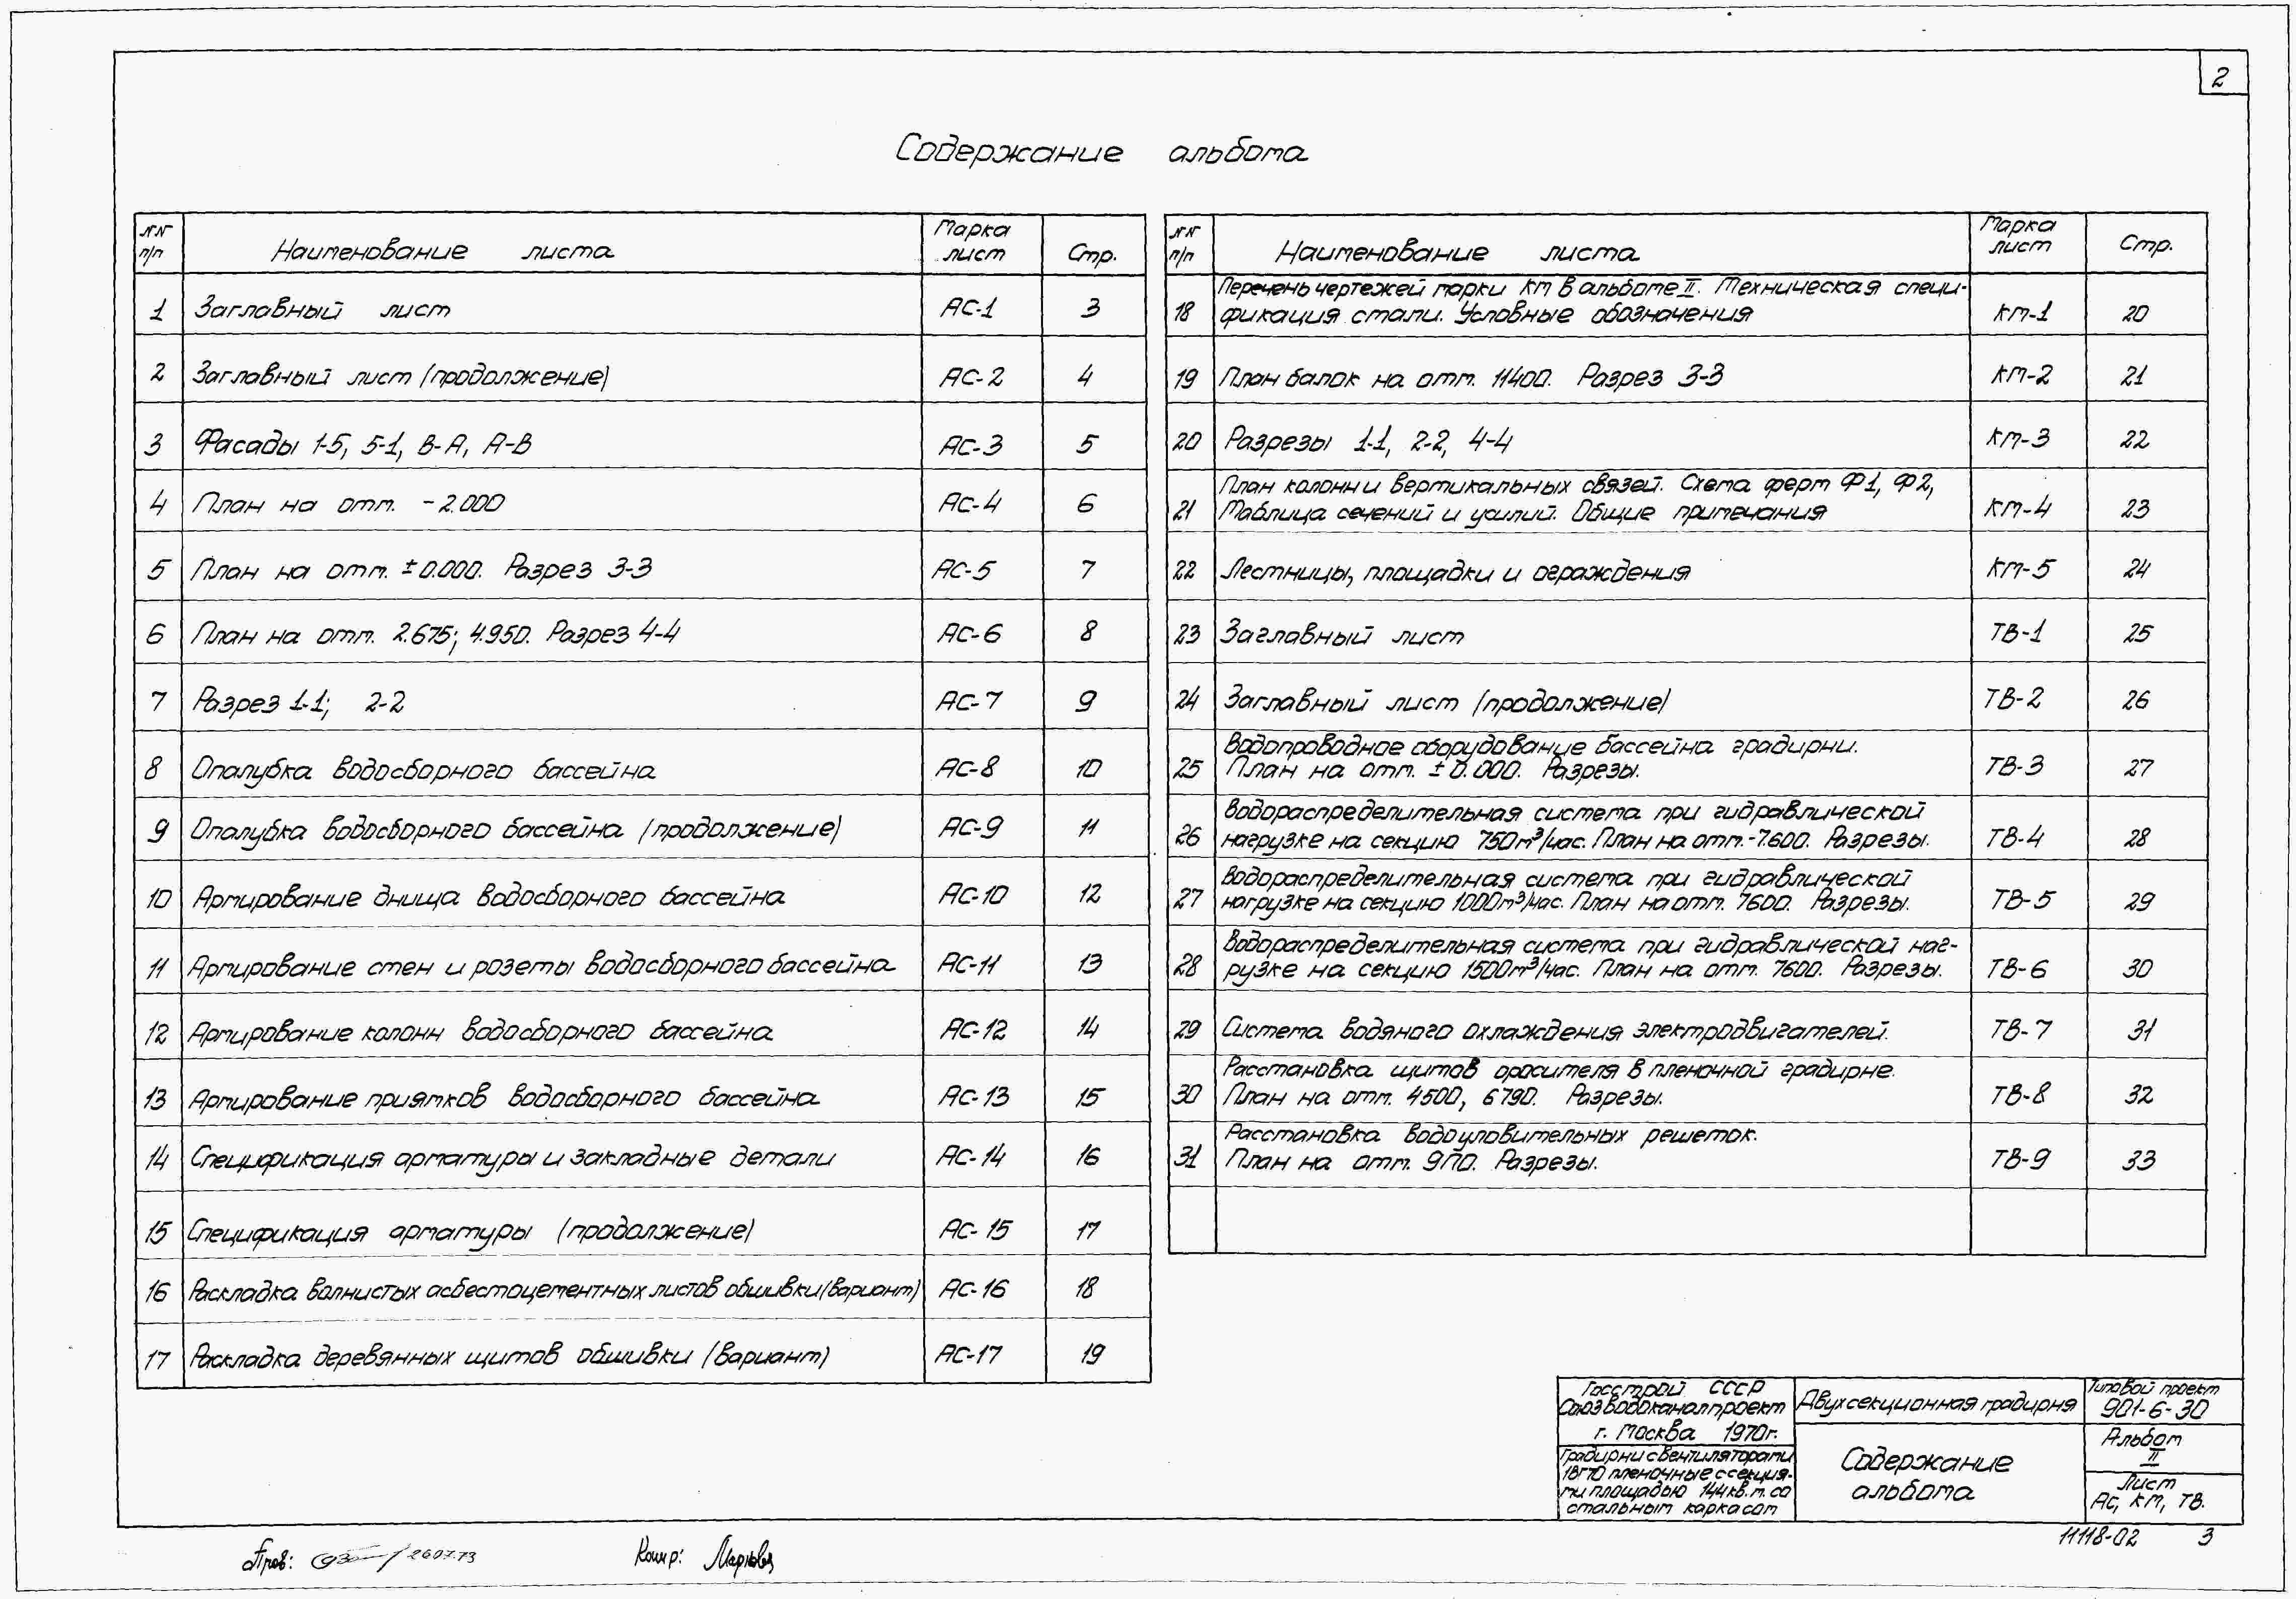 2
Содержание альбома
NN п/п Наименование листа Марка лист Стр.
1 Заглавный лист АС-1 3
2 Заглавный лист (продолжение) АС-2 4
3 Фасады 1-5, 5-1, В-А, А-В АС-3 5
4 План на отм. -2.000 АС-4 6
5 План на отм. ±0.000. Разрез 3-3 АС-5 7
6 План на отм. 2.675; 4.950. Разрез 4-4 АС-6 8
7 Разрез 1-1; 2-2 АС-7 9
8 Опалубка водосборного бассейна АС-8 10
9 Опалубка водосборного бассейна (продолжение) АС-9 11
10 Армирование днища водосборного бассейна АС-10 12
11 Армирование стен и розеты водосборного бассейна АС-11 13
12 Армирование колонн водосборного бассейна АС-12 14
13 Армирование приямков водосборного бассейна АС-13 15
14 Спецификация арматуры и закладные детали АС-14 16
15 Спецификация арматуры (продолжение) АС-15 17
16 Раскладка волнистых асбестоцементных листов обшивки (вариант) АС-16 18
17 Раскладка деревянных щитов обшивки (вариант) АС-17 19
NN п/п Наименование листа Марка лист Стр.
Перечень чертежей марки КМ в альбоме II. Техническая специ-
18 фикация стали. Условные обозначения КМ-1 20
19 План балок на отм. 11400. Разрез 3-3 КМ-2 21
20 Разрезы 1-1, 2-2, 4-4 КМ-3 22
План колонн и вертикальных связей. Схема ферм Ф1, Ф2,
21 Таблица сечений и усилий. Общие примечания КМ-4 23
22 Лестницы, площадки и ограждения КМ-5 24
23 Заглавный лист ТВ-1 25
24 Заглавный лист (продолжение) ТВ-2 26
Водопроводное оборудование бассейна градирни.
25 План на отм. ±0.000. Разрезы. ТВ-3 27
Водораспределительная система при гидравлической
26 нагрузке на секцию 750м³/час. План на отм.-7.600. Разрезы. ТВ-4 28
Водораспределительная система при гидравлической
27 нагрузке на секцию 1000м³/час. План на отм. 7600. Разрезы. ТВ-5 29
Водораспределительная система при гидравлической наг-
28 рузке на секцию 1500м³/час. План на отм. 7600. Разрезы. ТВ-6 30
29 Система водяного охлаждения электродвигателей. ТВ-7 31
Расстановка щитов оросителя в пленочной градирне.
30 План на отм. 4500, 6790. Разрезы. ТВ-8 32
Расстановка водоуловительных решеток.
31 План на отм. Разрезы. ТВ-9 33
Госстрой СССР
Союзводоканалпроект
г. Москва 1970г.
Градирни с вентиляторами
1ВГ70 пленочные с секция-
ми площадью 144кв.м. со
стальным каркасом
Двухсекционная градирня
Содержание
альбома
Типовой проект
901-6-30
Альбом
II
Лист
АС, КМ, ТВ.
11118-02 3
Пров: 26.07.73
Копир: Маркова